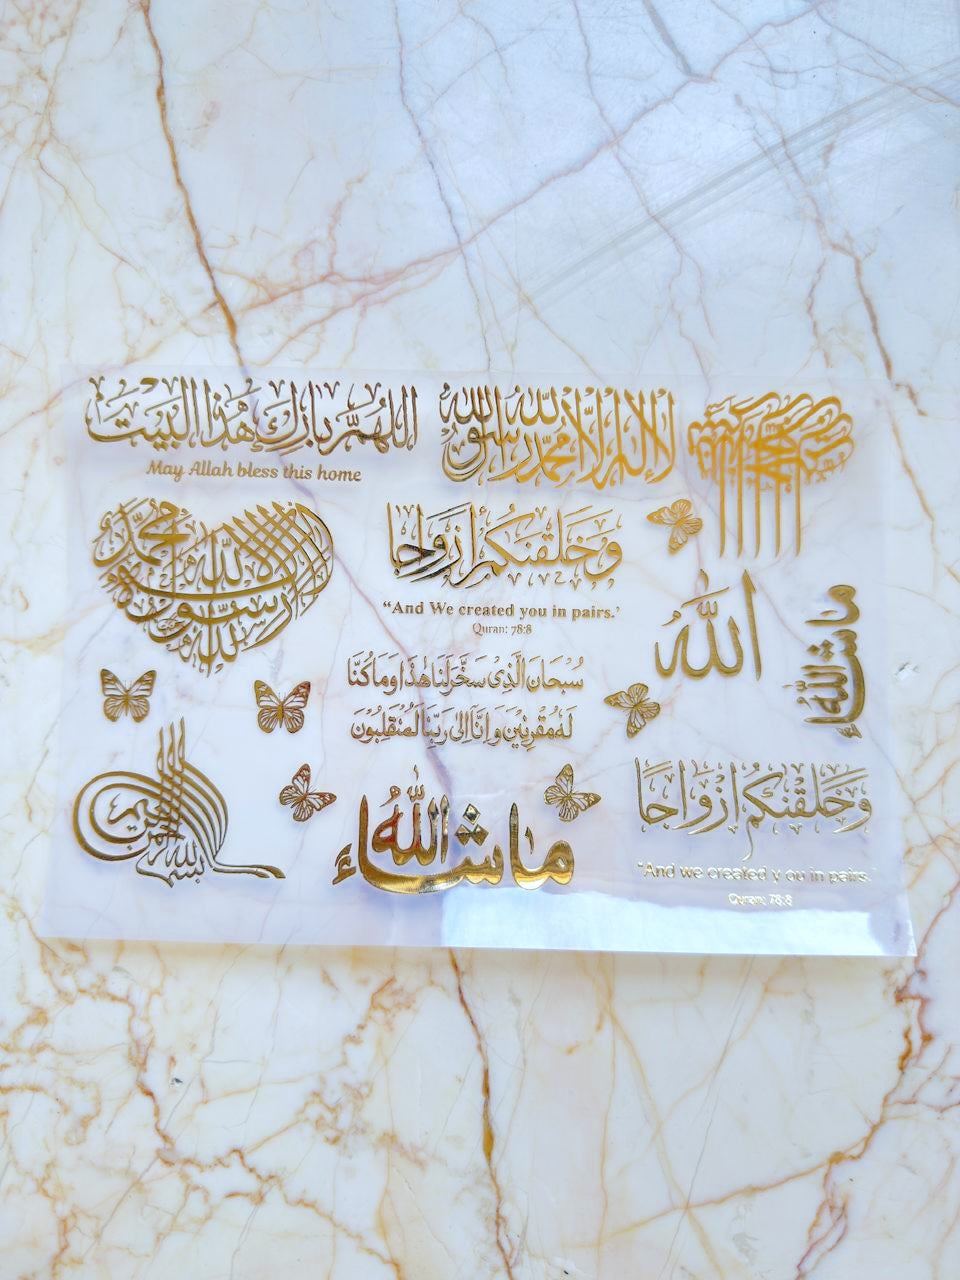 اللهم بارك هذا البيت
May Allah bless this home
لا إله إلا الله محمد رسول الله
لا إله إلا الله محمد رسول الله
وَخَلَقْنَكُمْ أَزْوَاجًا
“And We created you in pairs.’
Quran: 78:8
الله
ما شاء الله
سُبْحَانَ الَّذِىْ سَخَّرَ لَنَا هٰذَا وَمَا كُنَّا
لَهُ مُقْرِنِيْنَ وَ اِنَّا اِلٰى رَبِّنَا لَمُنْقَلِبُوْنَ
بسم الله الرحمن الرحيم
ما شاء الله
وَخَلَقْنَكُمْ أَزْوَاجًا
"And we created y ou in pairs.
Quran: 78:8